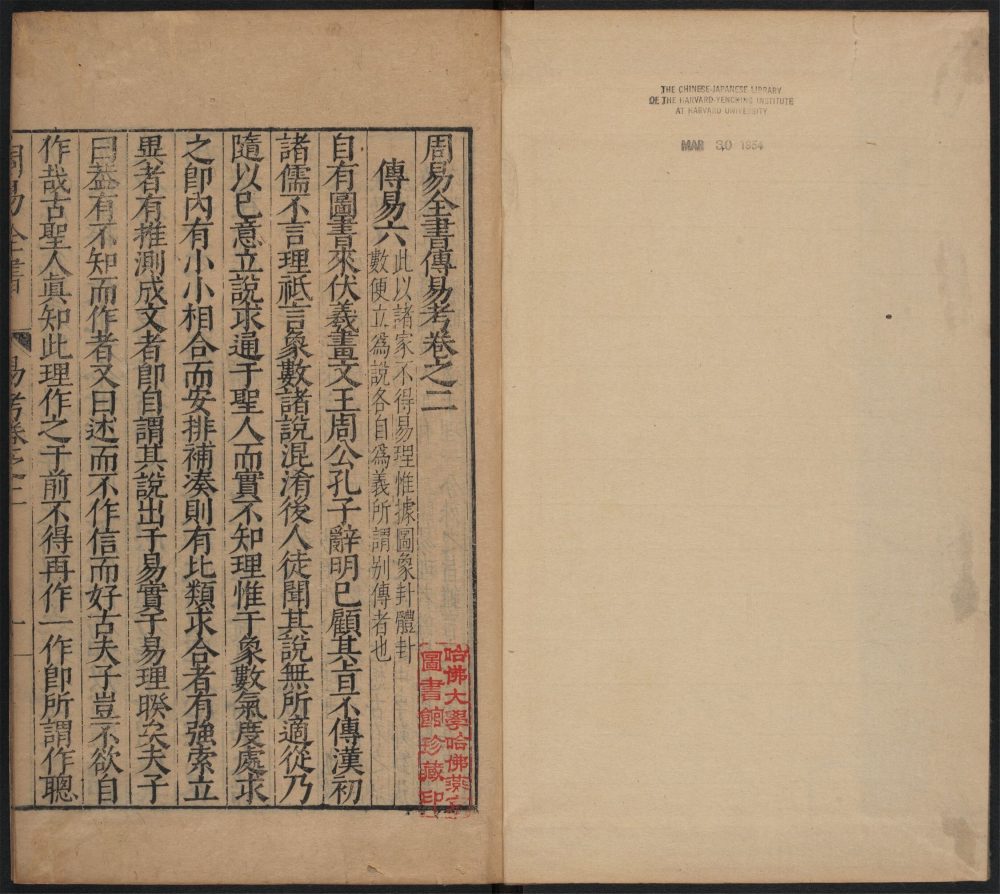 THE CHINESE-JAPANESE LIBRARY
OF THE HARVARD-YENCHING INSTITUTE
AT HARVARD UNIVERSITY
MAR 30 1954
周易全書傳易考卷之二
傳易六
此以諸家不得易理惟據圖象卦體卦
數便立爲說各自爲義所謂別傳者也
自有圖書來伏羲畫文王周公孔子辭明已顧其旨不傳漢初
諸儒不言理祗言象數諸說混淆後人徒聞其說無所適從乃
隨以已意立說求通于聖人而實不知理惟于象數氣度處求
之卽內有小小相合而安排補湊則有比類求合者有強索立
異者有推測成文者卽自謂其說出于易實于易理暌矣夫子
曰葢有不知而作者又曰述而不作信而好古夫子豈不欲自
作哉古聖人眞知此理作之于前不得再作一作卽所謂作聰
周易全書
易考卷之二
一
哈佛大學哈佛燕京
圖書館珍藏印